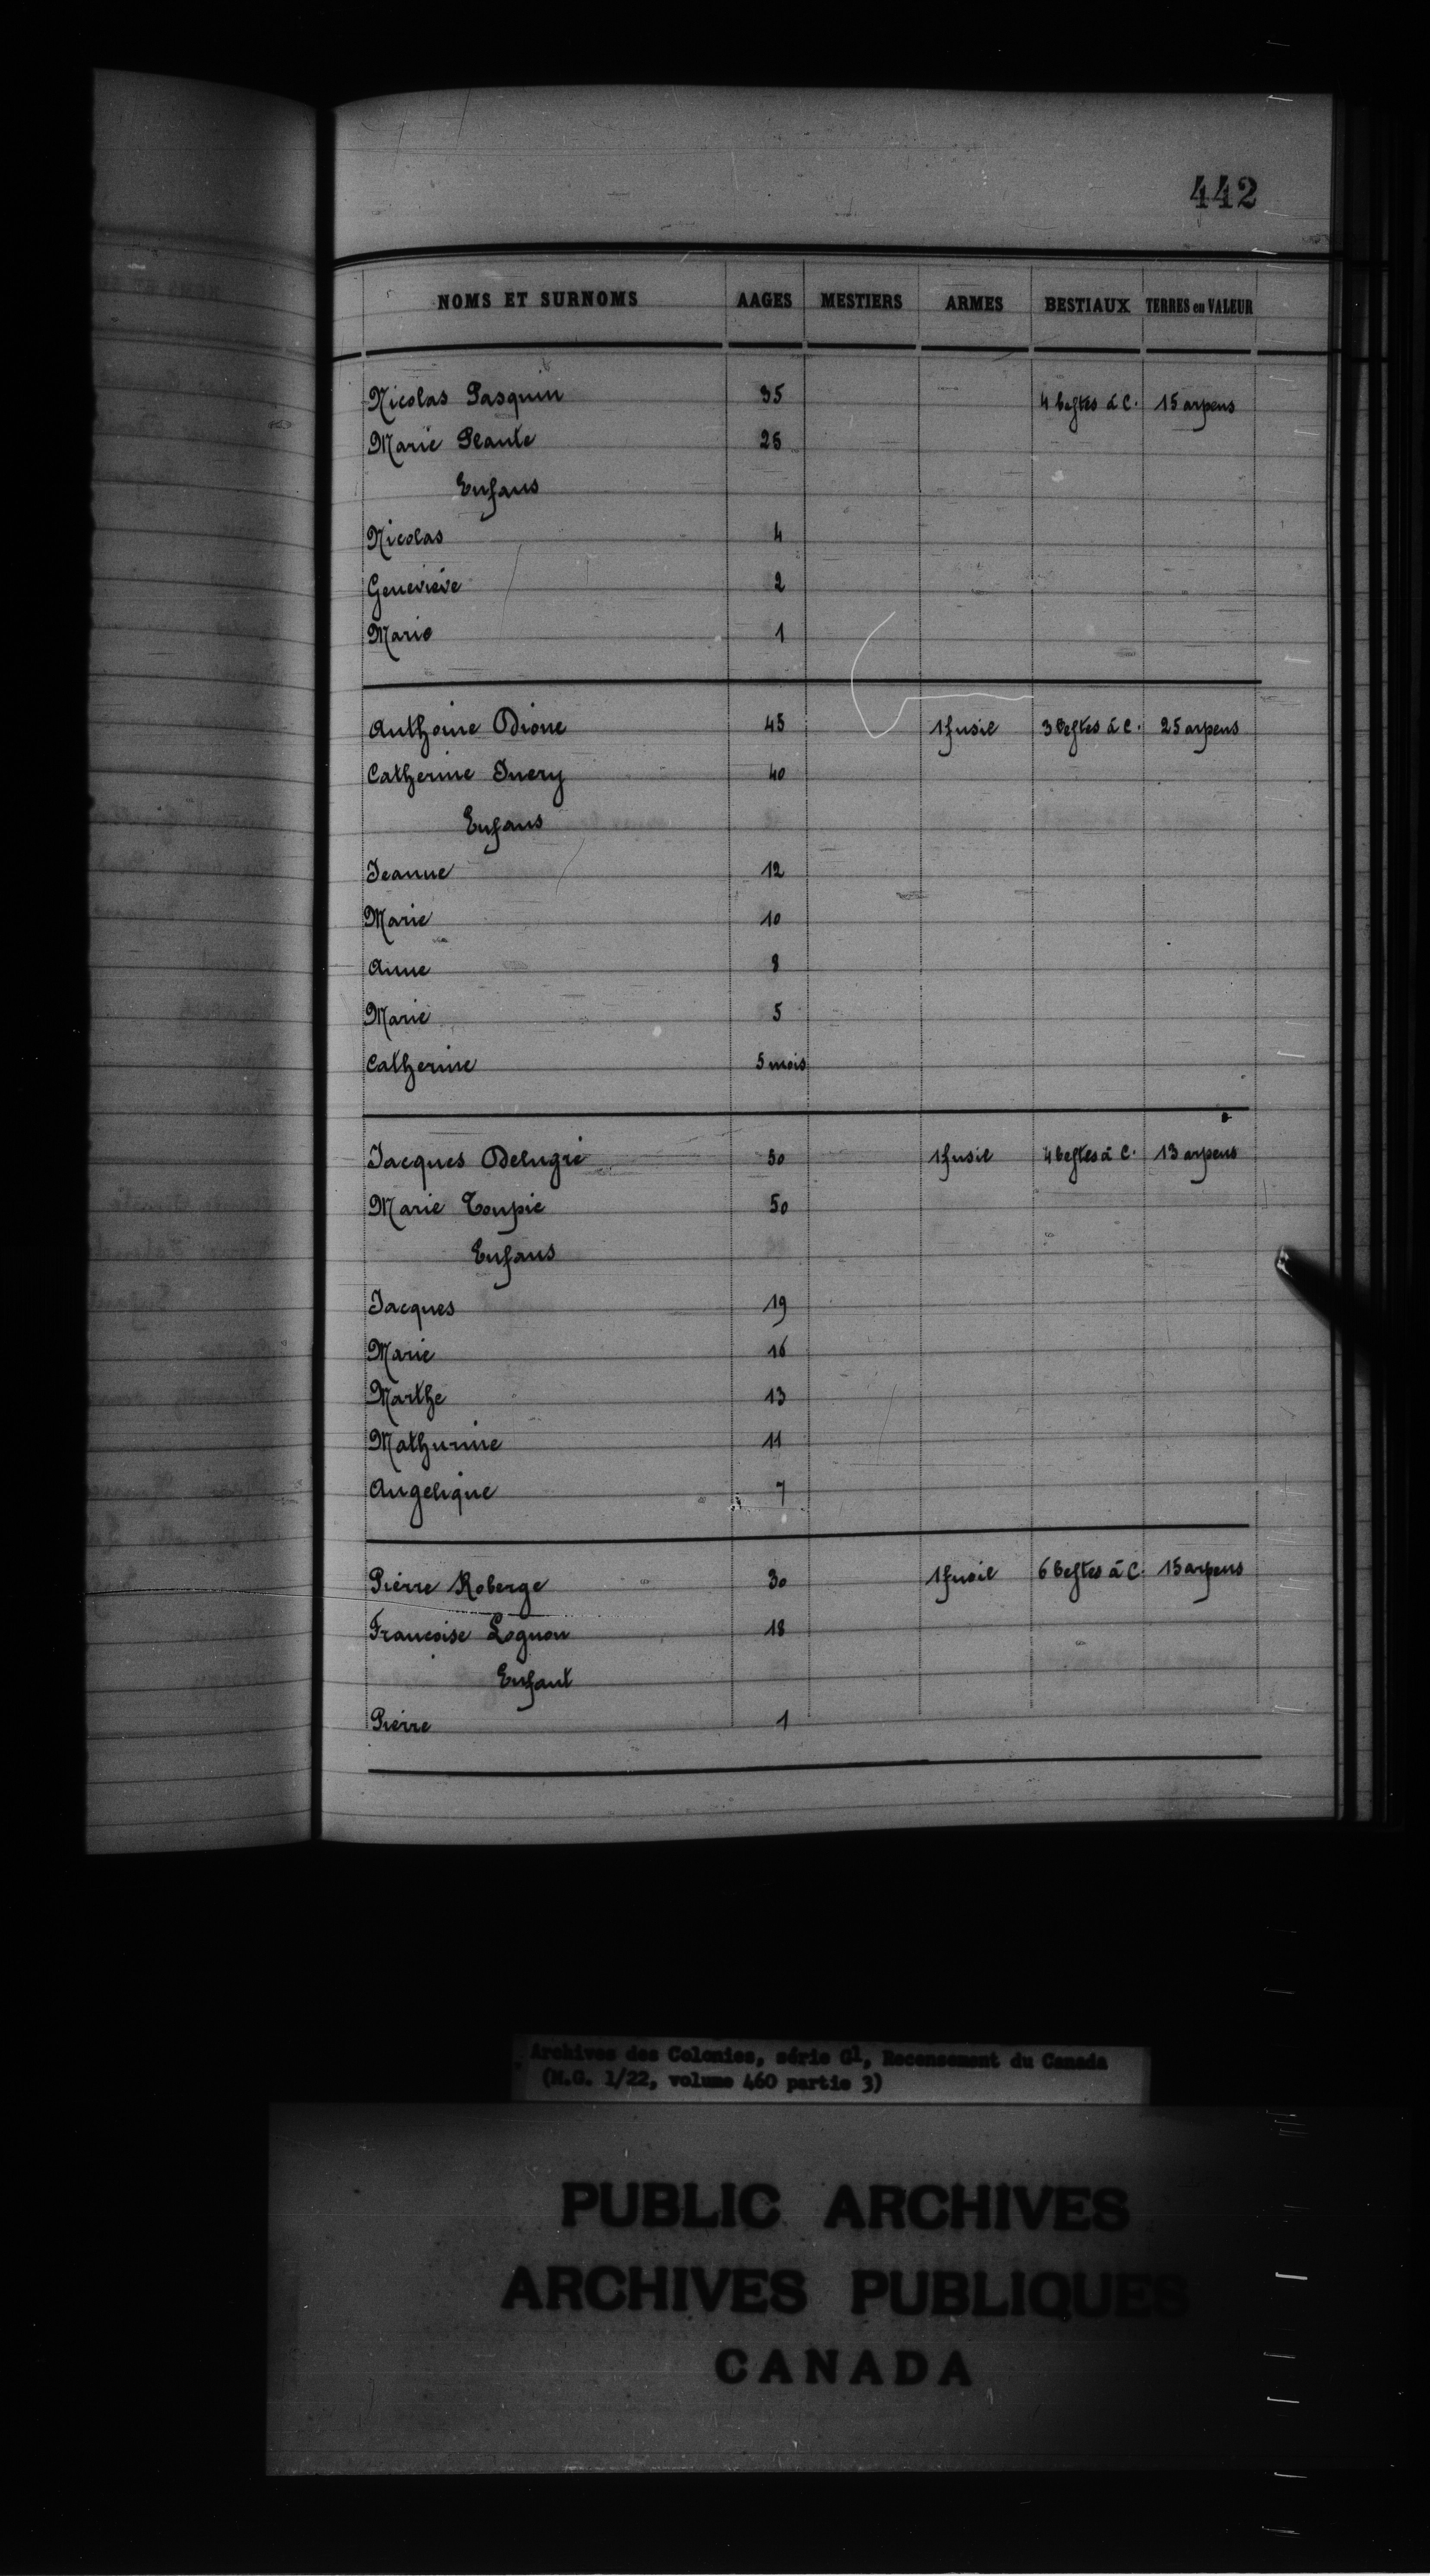 442
NOMS ET SURNOMS AAGES MESTIERS ARMES BESTIAUX TERRES en VALEUR
Nicolas Pasquin 35 4 bestes à C. 15 arpens
Marie Plante 25
Enfans
Nicolas 4
Geneviève 2
Marie 1
Anthoine Dione 45 1 fusil 3 bestes à C. 25 arpens
Catherine Ivery 40
Enfans
Jeanne 12
Marie 10
Anne 8
Marie 5
Catherine 5 mois
Jacques Delugré 50 1 fusil 4 bestes à C. 13 arpens
Marie Toupie 50
Enfans
Jacques 19
Marie 16
Marthe 13
Mathurine 11
Angelique 7
Pierre Roberge 30 1 fusil 6 bestes à C. 15 arpens
Francoise Lognon 18
Enfant
Pierre 1
Archives des Colonies, série G1, Recensement du Canada
(M.G. 1/22, volume 460 partie 3)
PUBLIC ARCHIVES
ARCHIVES PUBLIQUES
CANADA